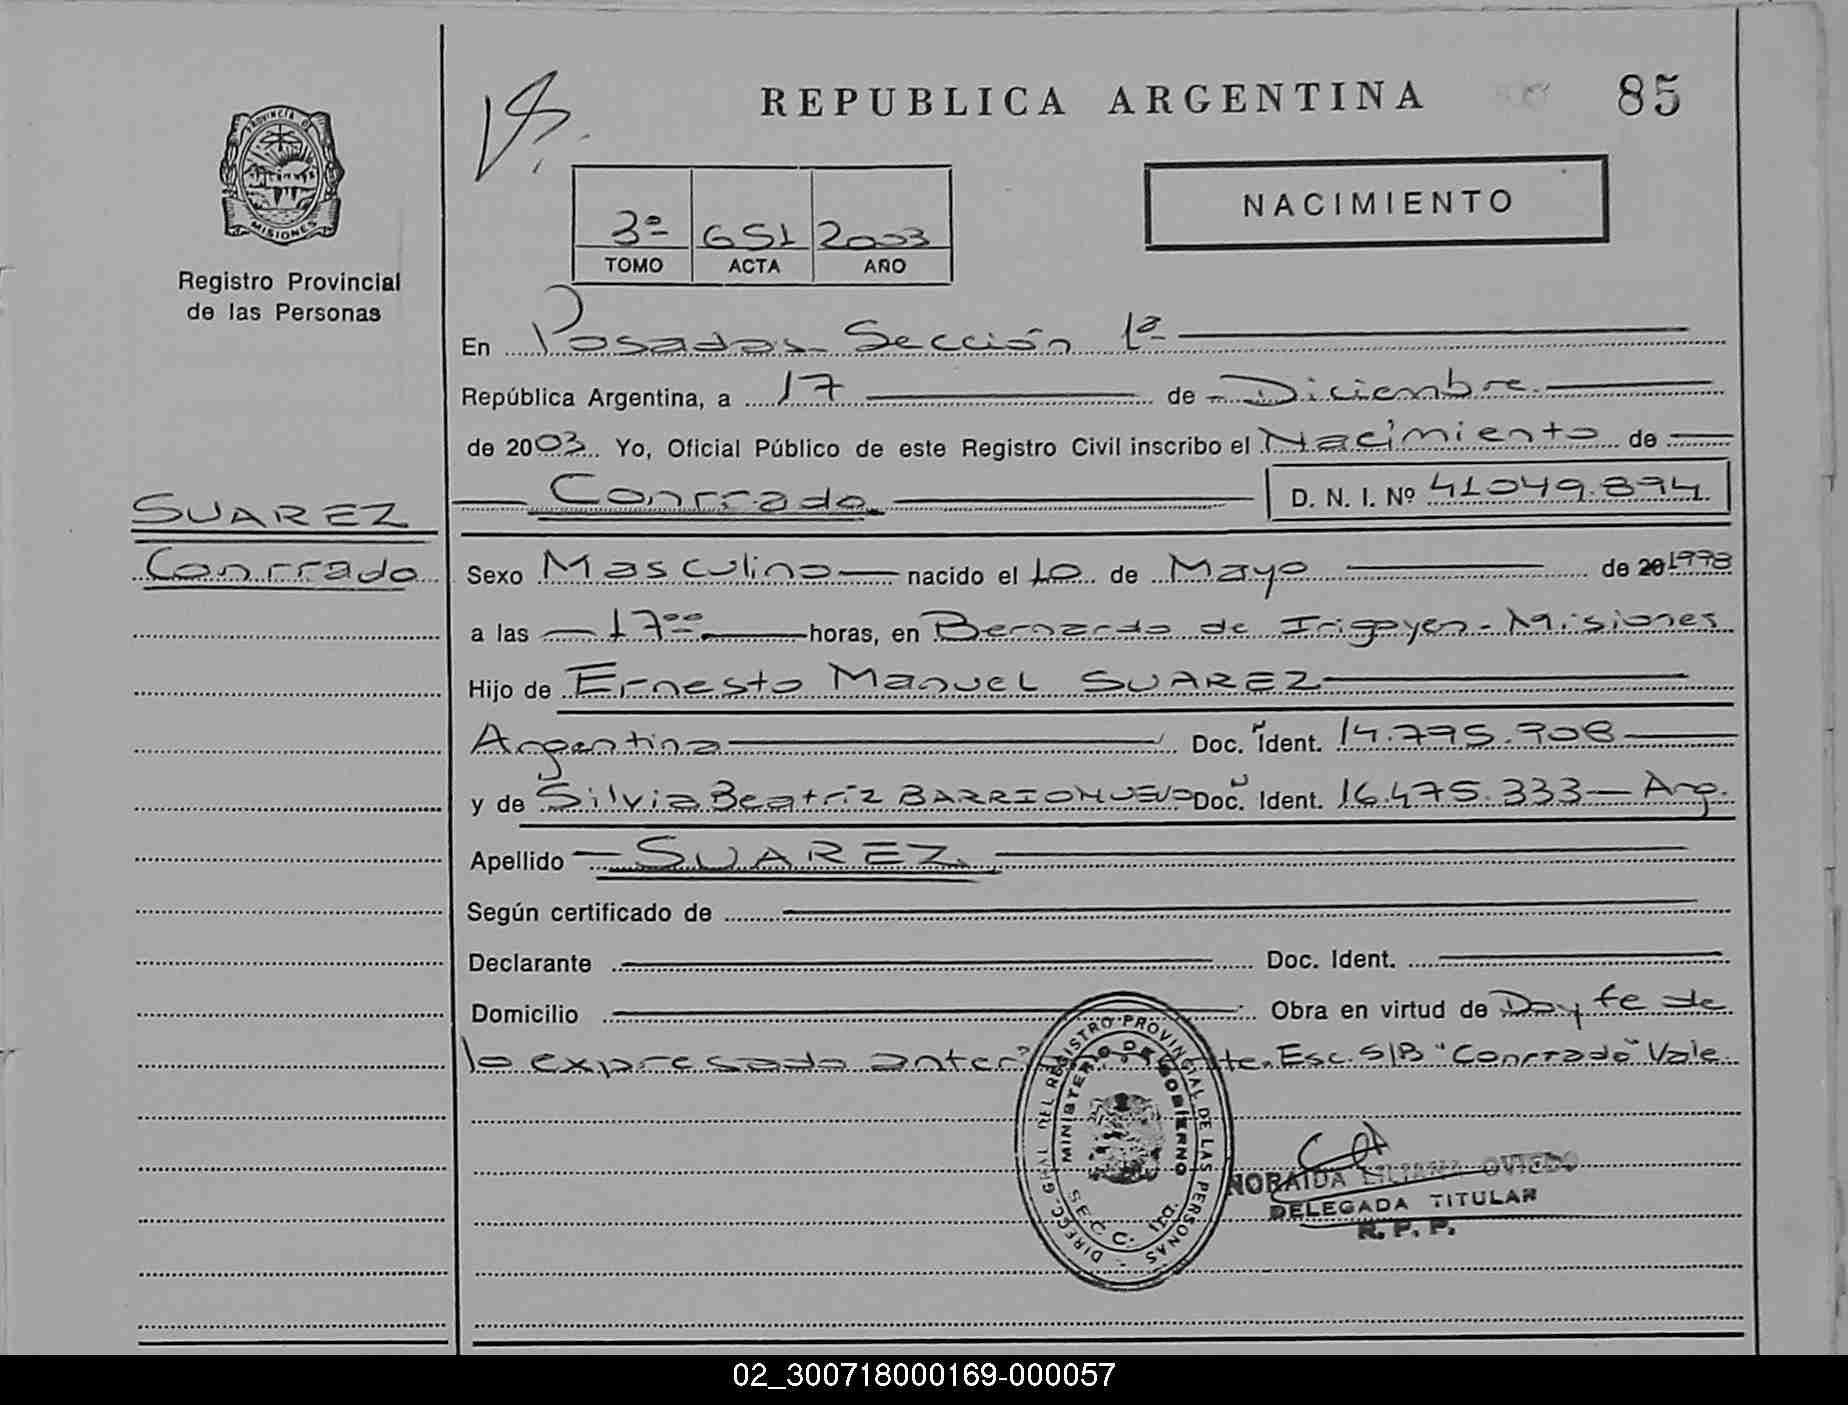 REPUBLICA ARGENTINA
85
PROVINCIA DE
MISIONES
Registro Provincial
de las Personas
3º 651 2003
TOMO ACTA AÑO
NACIMIENTO
En Posadas- Sección 1ª
República Argentina, a 17 de Diciembre.
de 2003. Yo, Oficial Público de este Registro Civil inscribo el Nacimiento de
SUAREZ
Conrrado
Conrrado D. N. I. Nº 41.049.894
Sexo Masculino nacido el 10 de Mayo de 20 1998
a las 17ºº horas, en Bernardo de Irigoyen - Misiones
Hijo de Ernesto Manuel SUAREZ
Argentina Doc. Ident. 14.795.908
y de Silvia Beatríz BARRIONUEVO Doc. Ident. 16.475.333 - Arg.
Apellido SUAREZ
Según certificado de
Declarante Doc. Ident.
Domicilio Obra en virtud de Doy fe de
lo expresado Esc. S/B "Conrrado" Vale
DIREC. GRAL DEL REGISTRO PROVINCIAL DE LAS PERSONAS
MINISTERIO DE GOBIERNO
SECC. 1RA.
NORAIDA LILIANA OVIEDO
DELEGADA TITULAR
R. P. P.
02_300718000169-000057